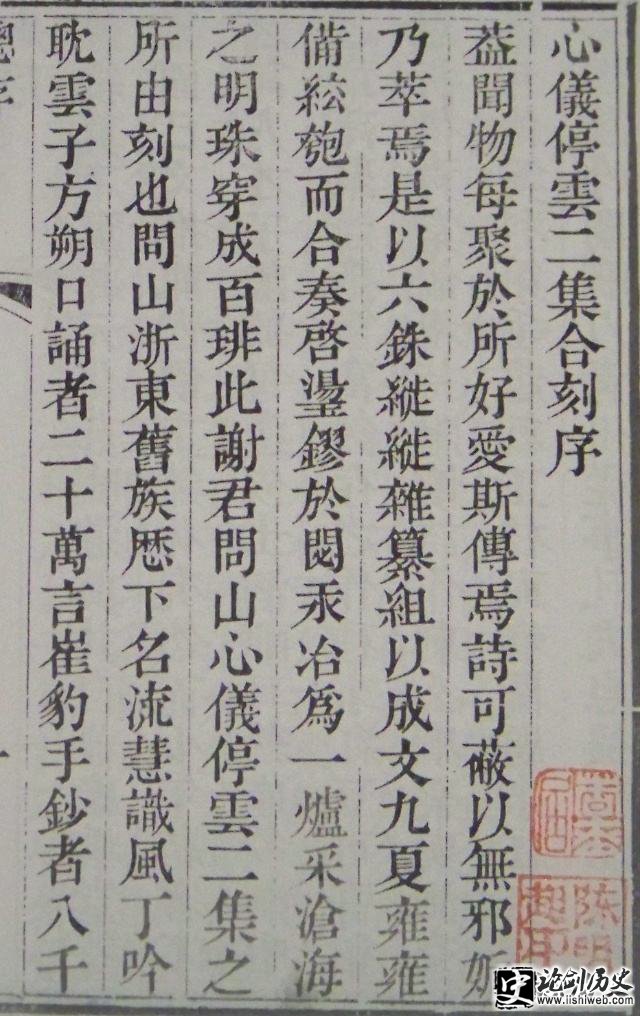 心儀停雲二集合刻序
葢聞物每聚於所好愛斯傳焉詩可蔽以無邪妍
乃萃焉是以六銖縰縰雜纂組以成文九夏雍雍
備絃匏而合奏啓璗鏐於閟汞冶爲一爐采滄海
之明珠穿成百琲此謝君問山心儀停雲二集之
所由刻也問山浙東舊族歷下名流慧識風丁吟
耽雲子方朔口誦者二十萬言崔豹手鈔者八千
史 论剑历史
www.lishiweb.com